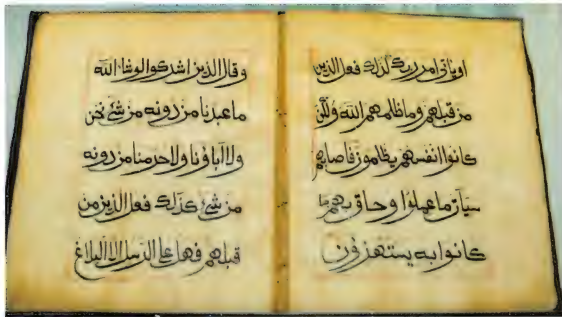 او ياتى امر ربك كذلك فعل الذين
من قبلهم وما ظلمهم الله ولكن
كانوا انفسهم يظلمون فاصابهم
سيآت ما عملوا وحاق بهم ما
كانوا به يستهزؤن
وقال الذين اشركوا لو شاء الله
ما عبدنا من دونه من شئ نحن
ولا آباؤنا ولا حرمنا من دونه
من شئ كذلك فعل الذين من
قبلهم فهل على الرسل الا البلاغ